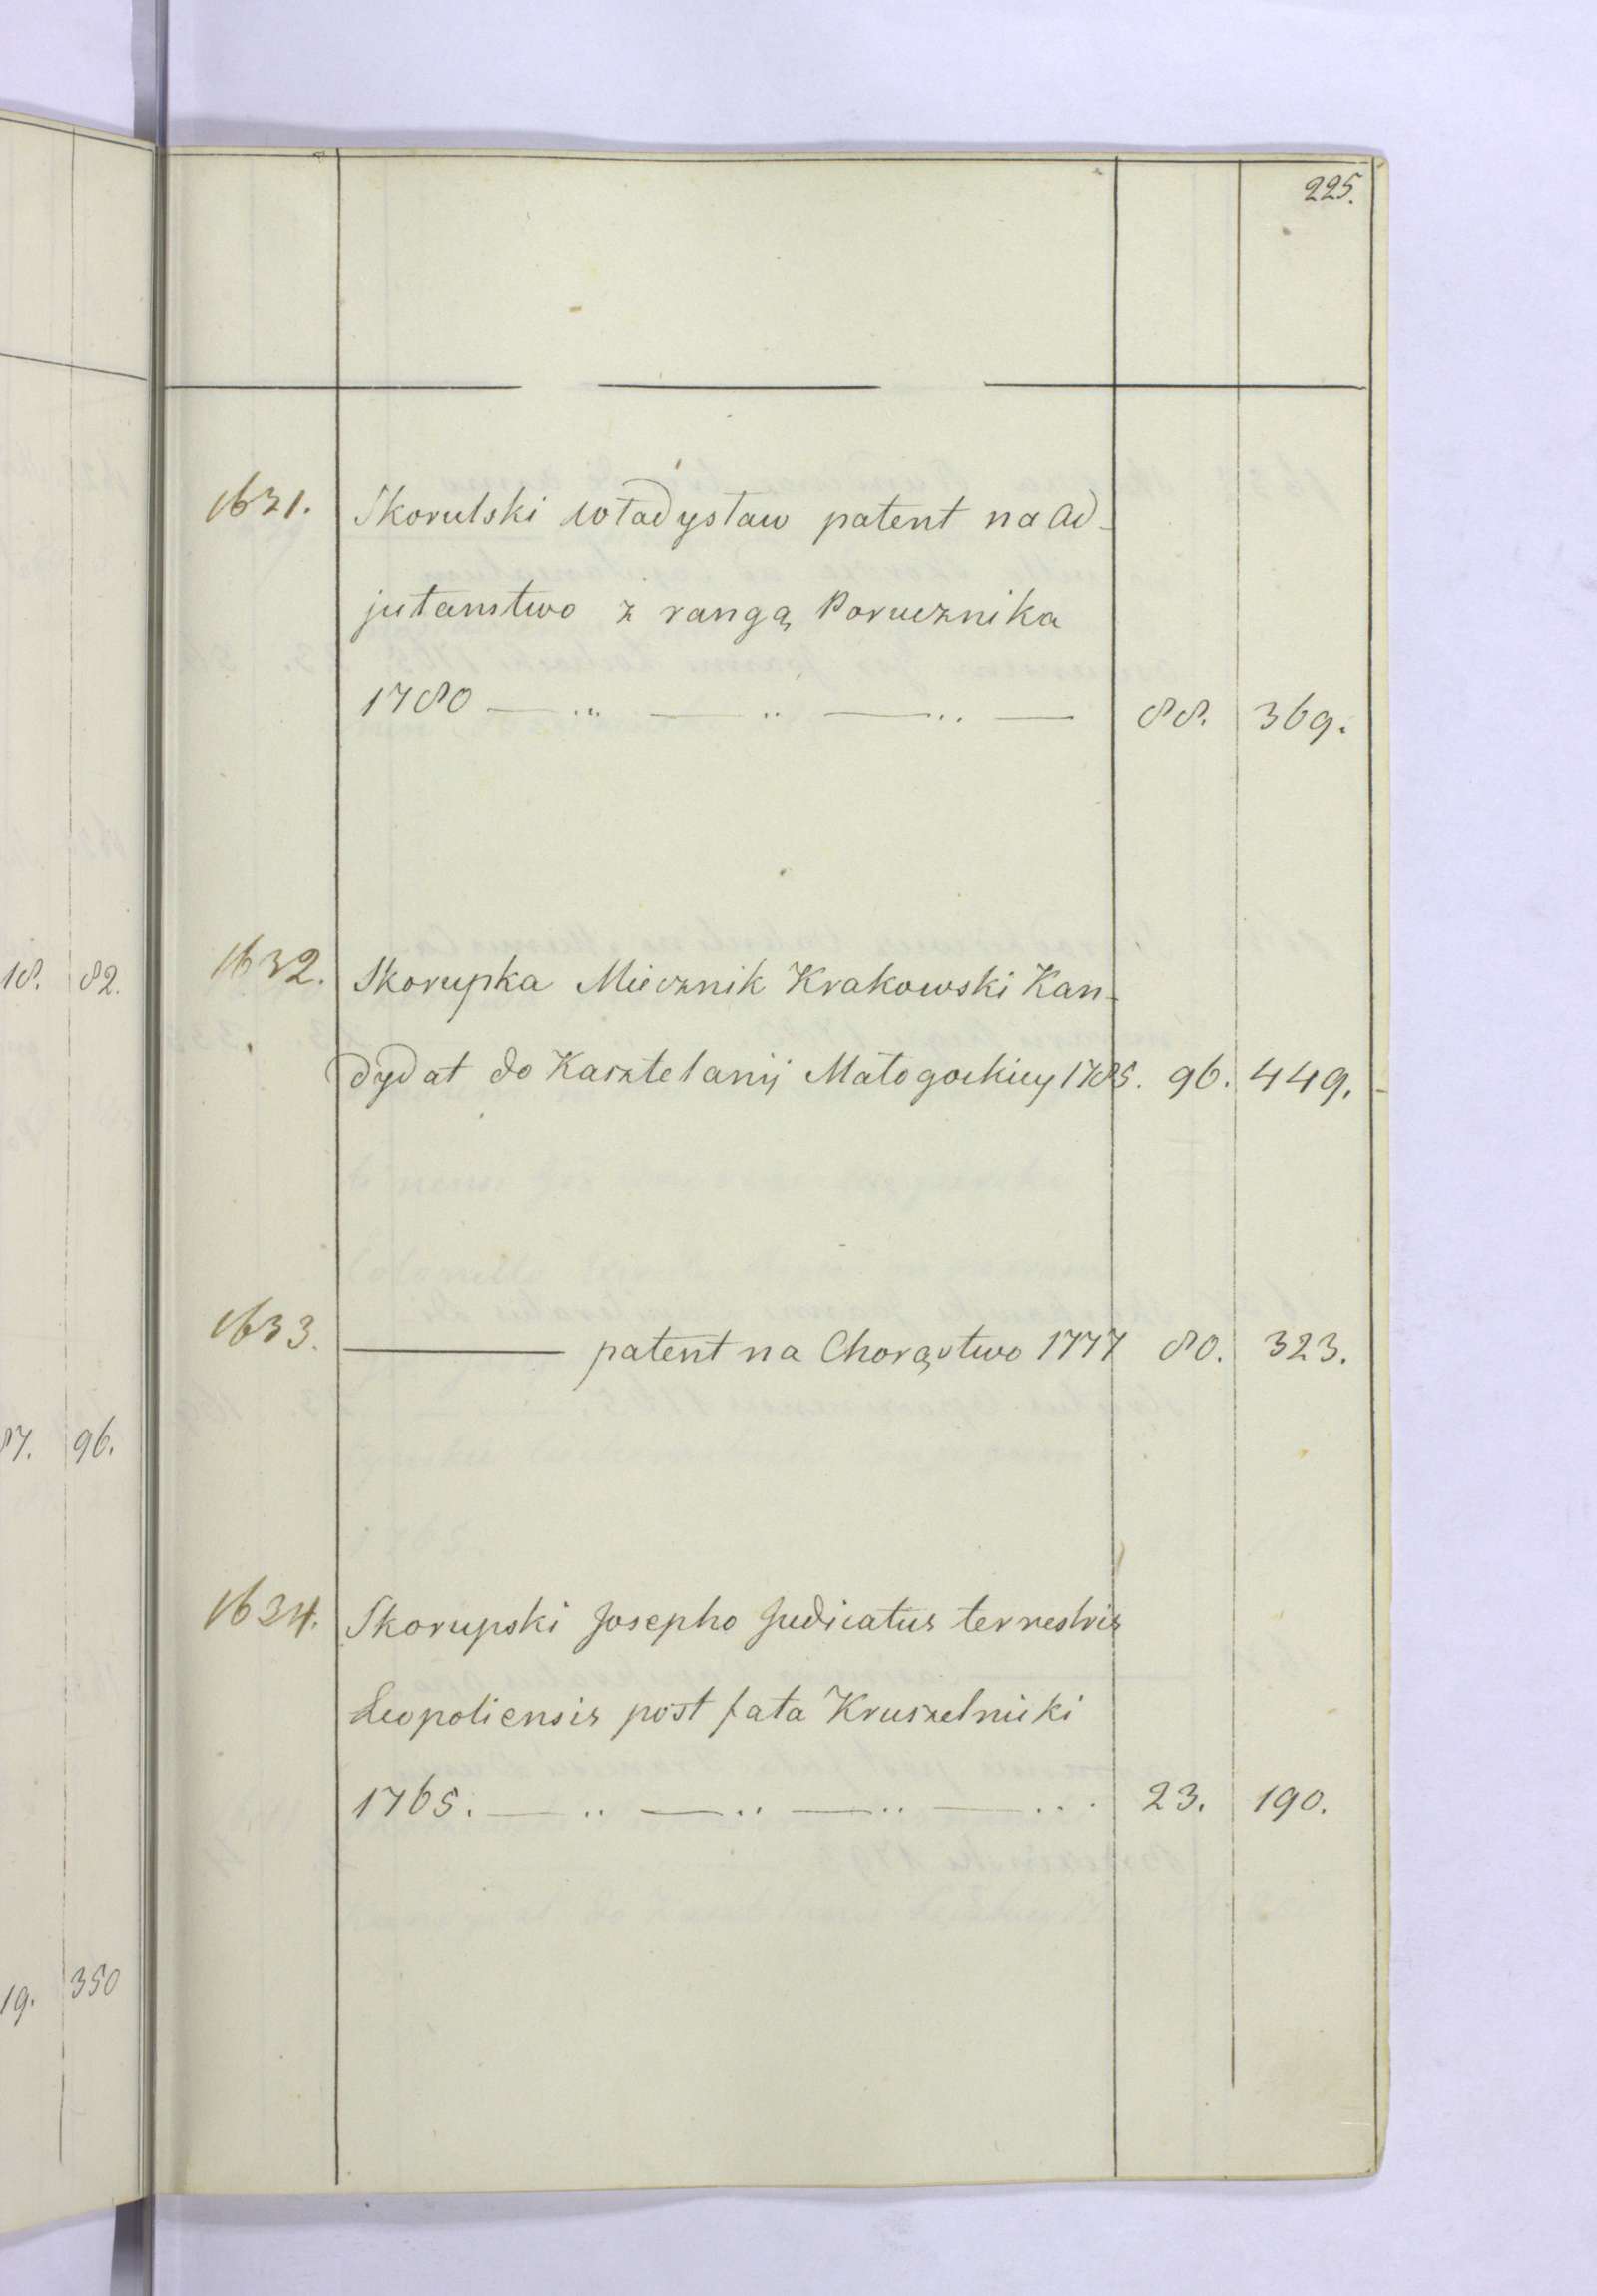 225.
1631. Skorulski Władysław patent na Ad-
jutanstwo z rangą Porucznika
1780 — „ — „ — „ — 88. 369.
1632. Skorupka Miecznik Krakowski Kan-
dydat do Kasztelanij Małogockiey 1785. 96. 449.
1633. ——— patent na Chorąstwo 1777 80. 323.
1634. Skorupski Josepho Judicatus terrestris
Leopoliensis post fata Kruszelnicki
1765. — „ — „ — „ — „ 23. 190.
18. 82.
96.
19. 350